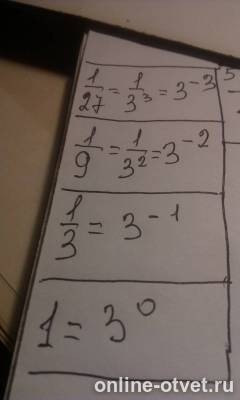 1/27 = 1/3³ = 3⁻³
1/9 = 1/3² = 3⁻²
1/3 = 3⁻¹
1 = 3⁰
online-otvet.ru